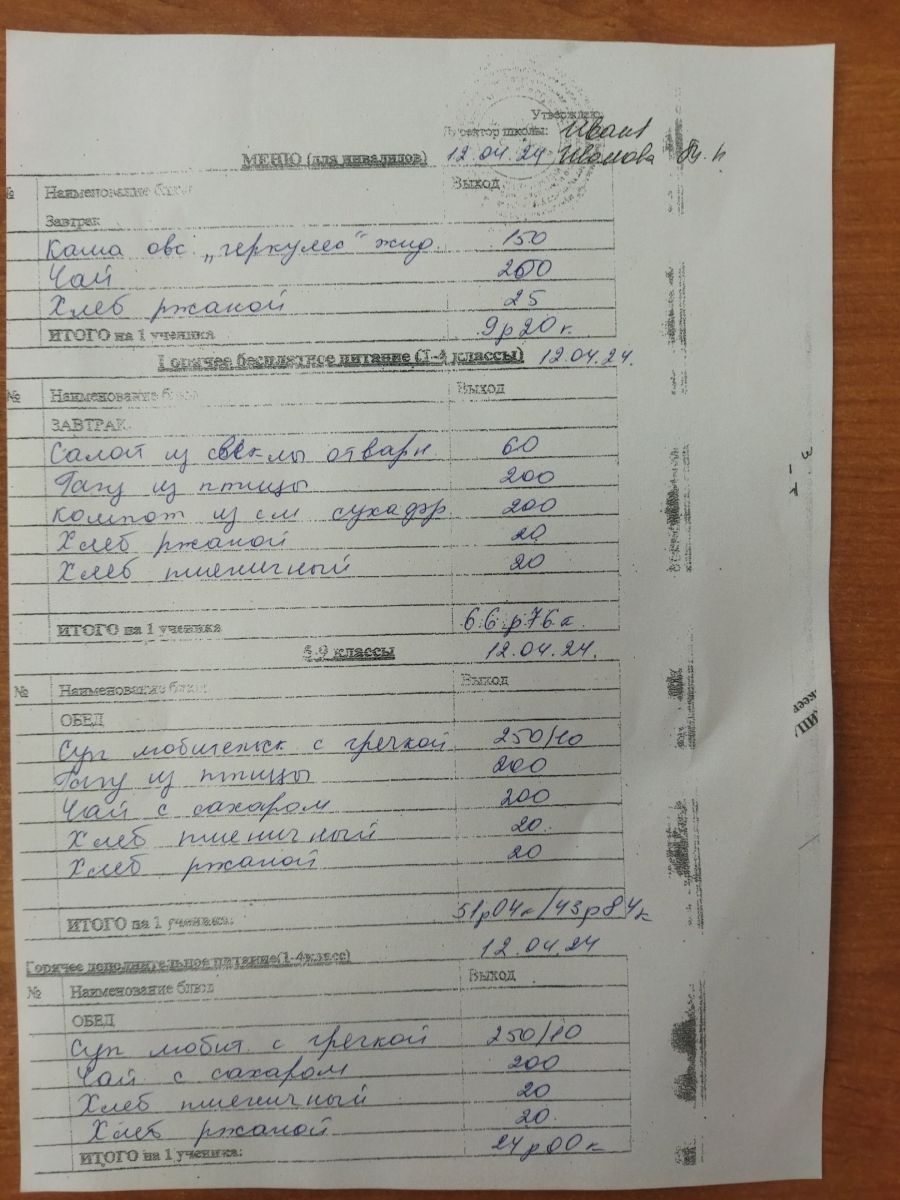 Утверждаю
Директор школы:
МЕНЮ (для инвалидов) 12.04.24 Иванова
№ Наименование блюд Выход
Завтрак
Каша овс „геркулес" жид 150
Чай 200
Хлеб ржаной 25
ИТОГО на 1 ученика 9р20к.
Горячее бесплатное питание (1-4 классы) 12.04.24.
№ Наименование блюд Выход
ЗАВТРАК
Салат из свеклы отварн. 60
Рагу из птицы 200
Компот из см сухофр. 200
Хлеб ржаной 20
Хлеб пшеничный 20
ИТОГО на 1 ученика 66р76к.
5-9 классы 12.04.24.
№ Наименование блюд Выход
ОБЕД
Суп любительск с гречкой 250/10
Рагу из птицы 200
Чай с сахаром 200
Хлеб пшеничный 20
Хлеб ржаной 20
ИТОГО на 1 ученика: 51р04к/43р84к
12.04.24
Горячее дополнительное питание(1-4класс)
№ Наименование блюд Выход
ОБЕД
Суп любит. с гречкой 250/10
Чай с сахаром 200
Хлеб пшеничный 20
Хлеб ржаной 20
ИТОГО на 1 ученика: 24р00к